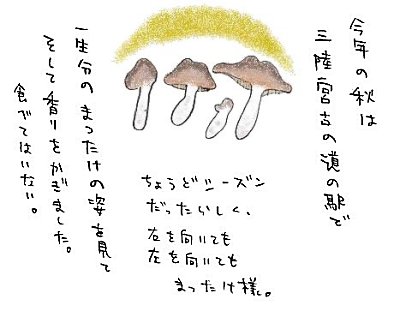 今年の秋は
三陸宮古の道の駅で
一生分のまったけの姿を見て
そして香りをかぎました。
食べてはいない。
ちょうどシーズン
だったらしく、
右を向いても
左を向いても
まったけ様。